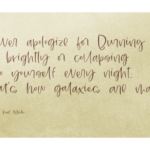 ever apologize for burning
brightly or collapsing
to yourself every night.
at's how galaxies are ma